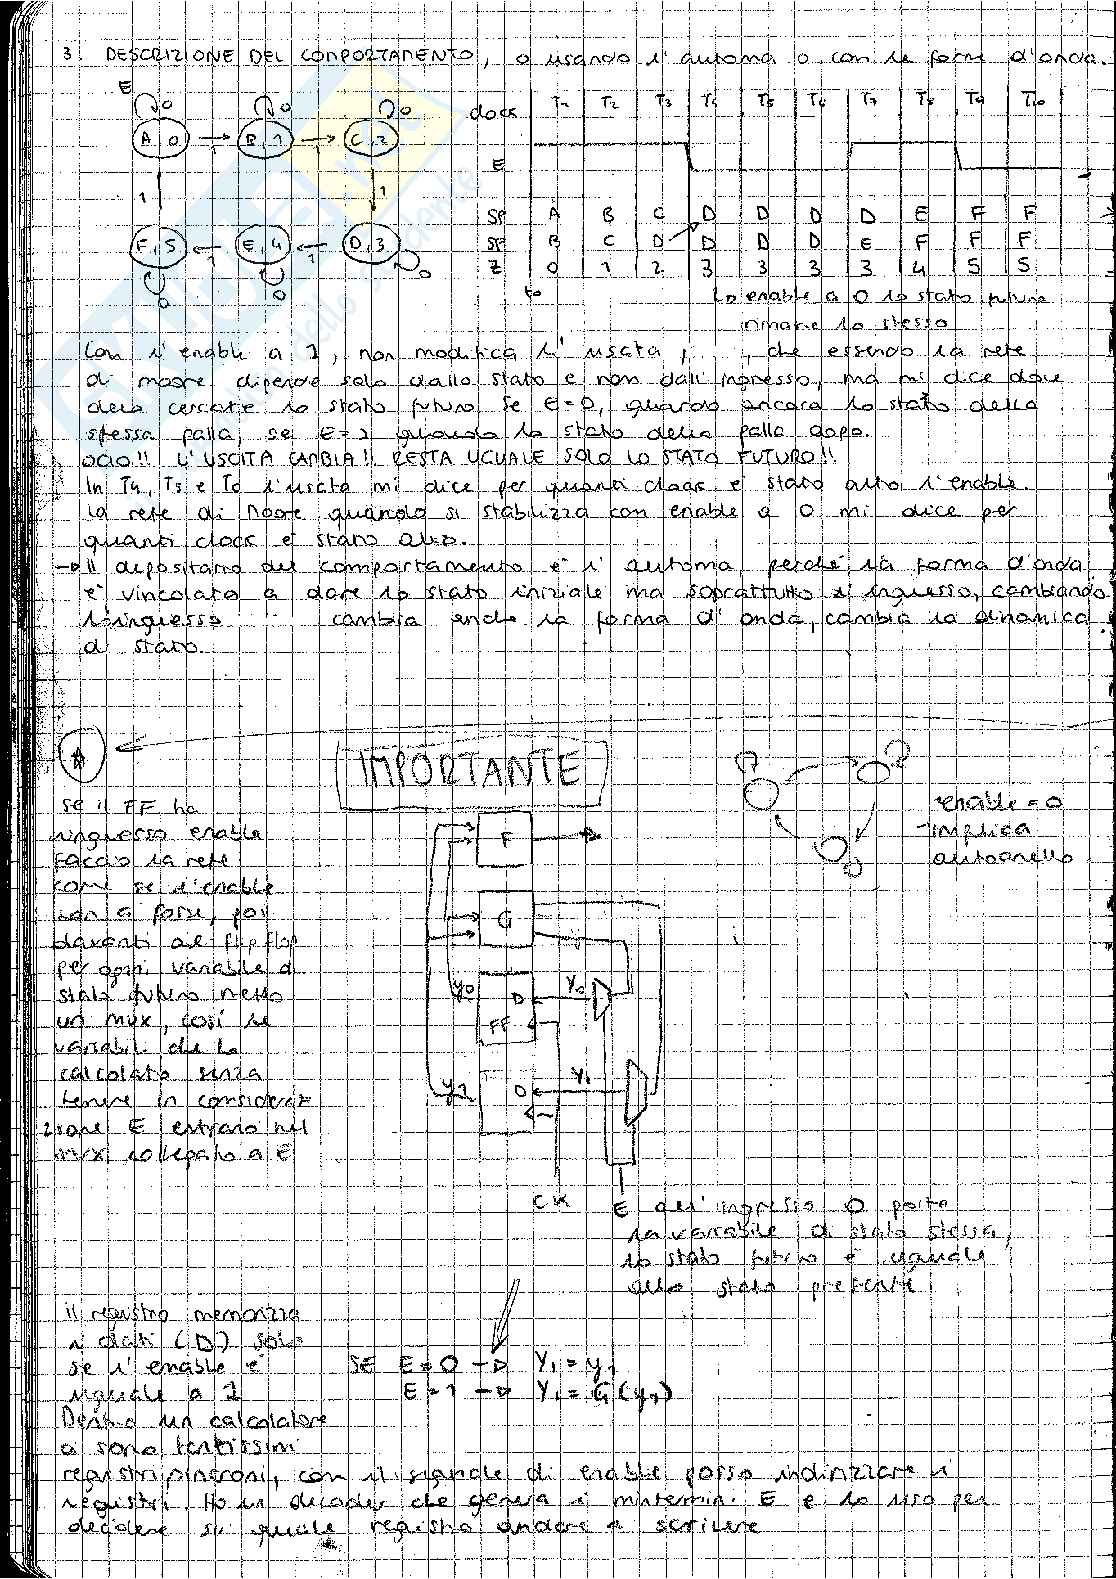 3. DESCRIZIONE DEL COMPORTAMENTO, o usando l'automa o con le forme d'onda.
E 0 0 0
A,0 B,1 C,2
1 1
1 1
F,5 E,4 D,3
1 1
0 0 0
clock T1 T2 T3 T4 T5 T6 T7 T8 T9 T10
E
SP A B C D D D D E F F
SF B C D D D D E F F F
Z 0 1 2 3 3 3 3 4 5 5
t0 Lo enable a 0 lo stato futuro
rimane lo stesso
Con l'enable a 1, non modifica l'uscita, che essendo la rete
di moore dipende solo dallo stato e non dall'ingresso, ma mi dice dove
devo cercare lo stato futuro se E=0, guardo ancora lo stato della
stessa palla, se E=1 guardo lo stato della palla dopo.
OCIO!! L'USCITA CAMBIA!! RESTA UGUALE SOLO LO STATO FUTURO!!
In T4, T5 e T6 l'uscita mi dice per quanti clock è stato alto l'enable.
La rete di Moore quando si stabilizza con enable a 0 mi dice per
quanti clock è stato alto.
→ Il depositario del comportamento è l'automa, perché la forma d'onda
è vincolata a dare lo stato iniziale ma soprattutto l'ingresso, cambiando
l'ingresso cambia anche la forma d'onda, cambia la dinamica
di stato.
A
IMPORTANTE
se il FF ha
ingresso enable
faccio la rete
come se l'enable
non ci fosse, poi
davanti al flip flop
per ogni variabile di
stato futuro metto
un mux, così le
variabili che ho
calcolato senza
tenere in considera
zione E entrano nel
mux collegato a E
enable = 0
implica
autoanello
F
G
y0 D Y0
FF
y1 D Y1
CK E all'ingresso 0 porto
la variabile di stato stessa,
lo stato futuro è uguale
allo stato presente
il registro memorizza
i dati (D) solo
se l'enable è
uguale a 1
SE E=0 → Y1 = y1
E=1 → Y1 = G(y1)
Dentro un calcolatore
ci sono tantissimi
registri sincroni, con il segnale di enable posso indirizzare i
registri. Ho un decoder che genera i mintermini. E e lo uso per
decidere su quale registro andare a scrivere